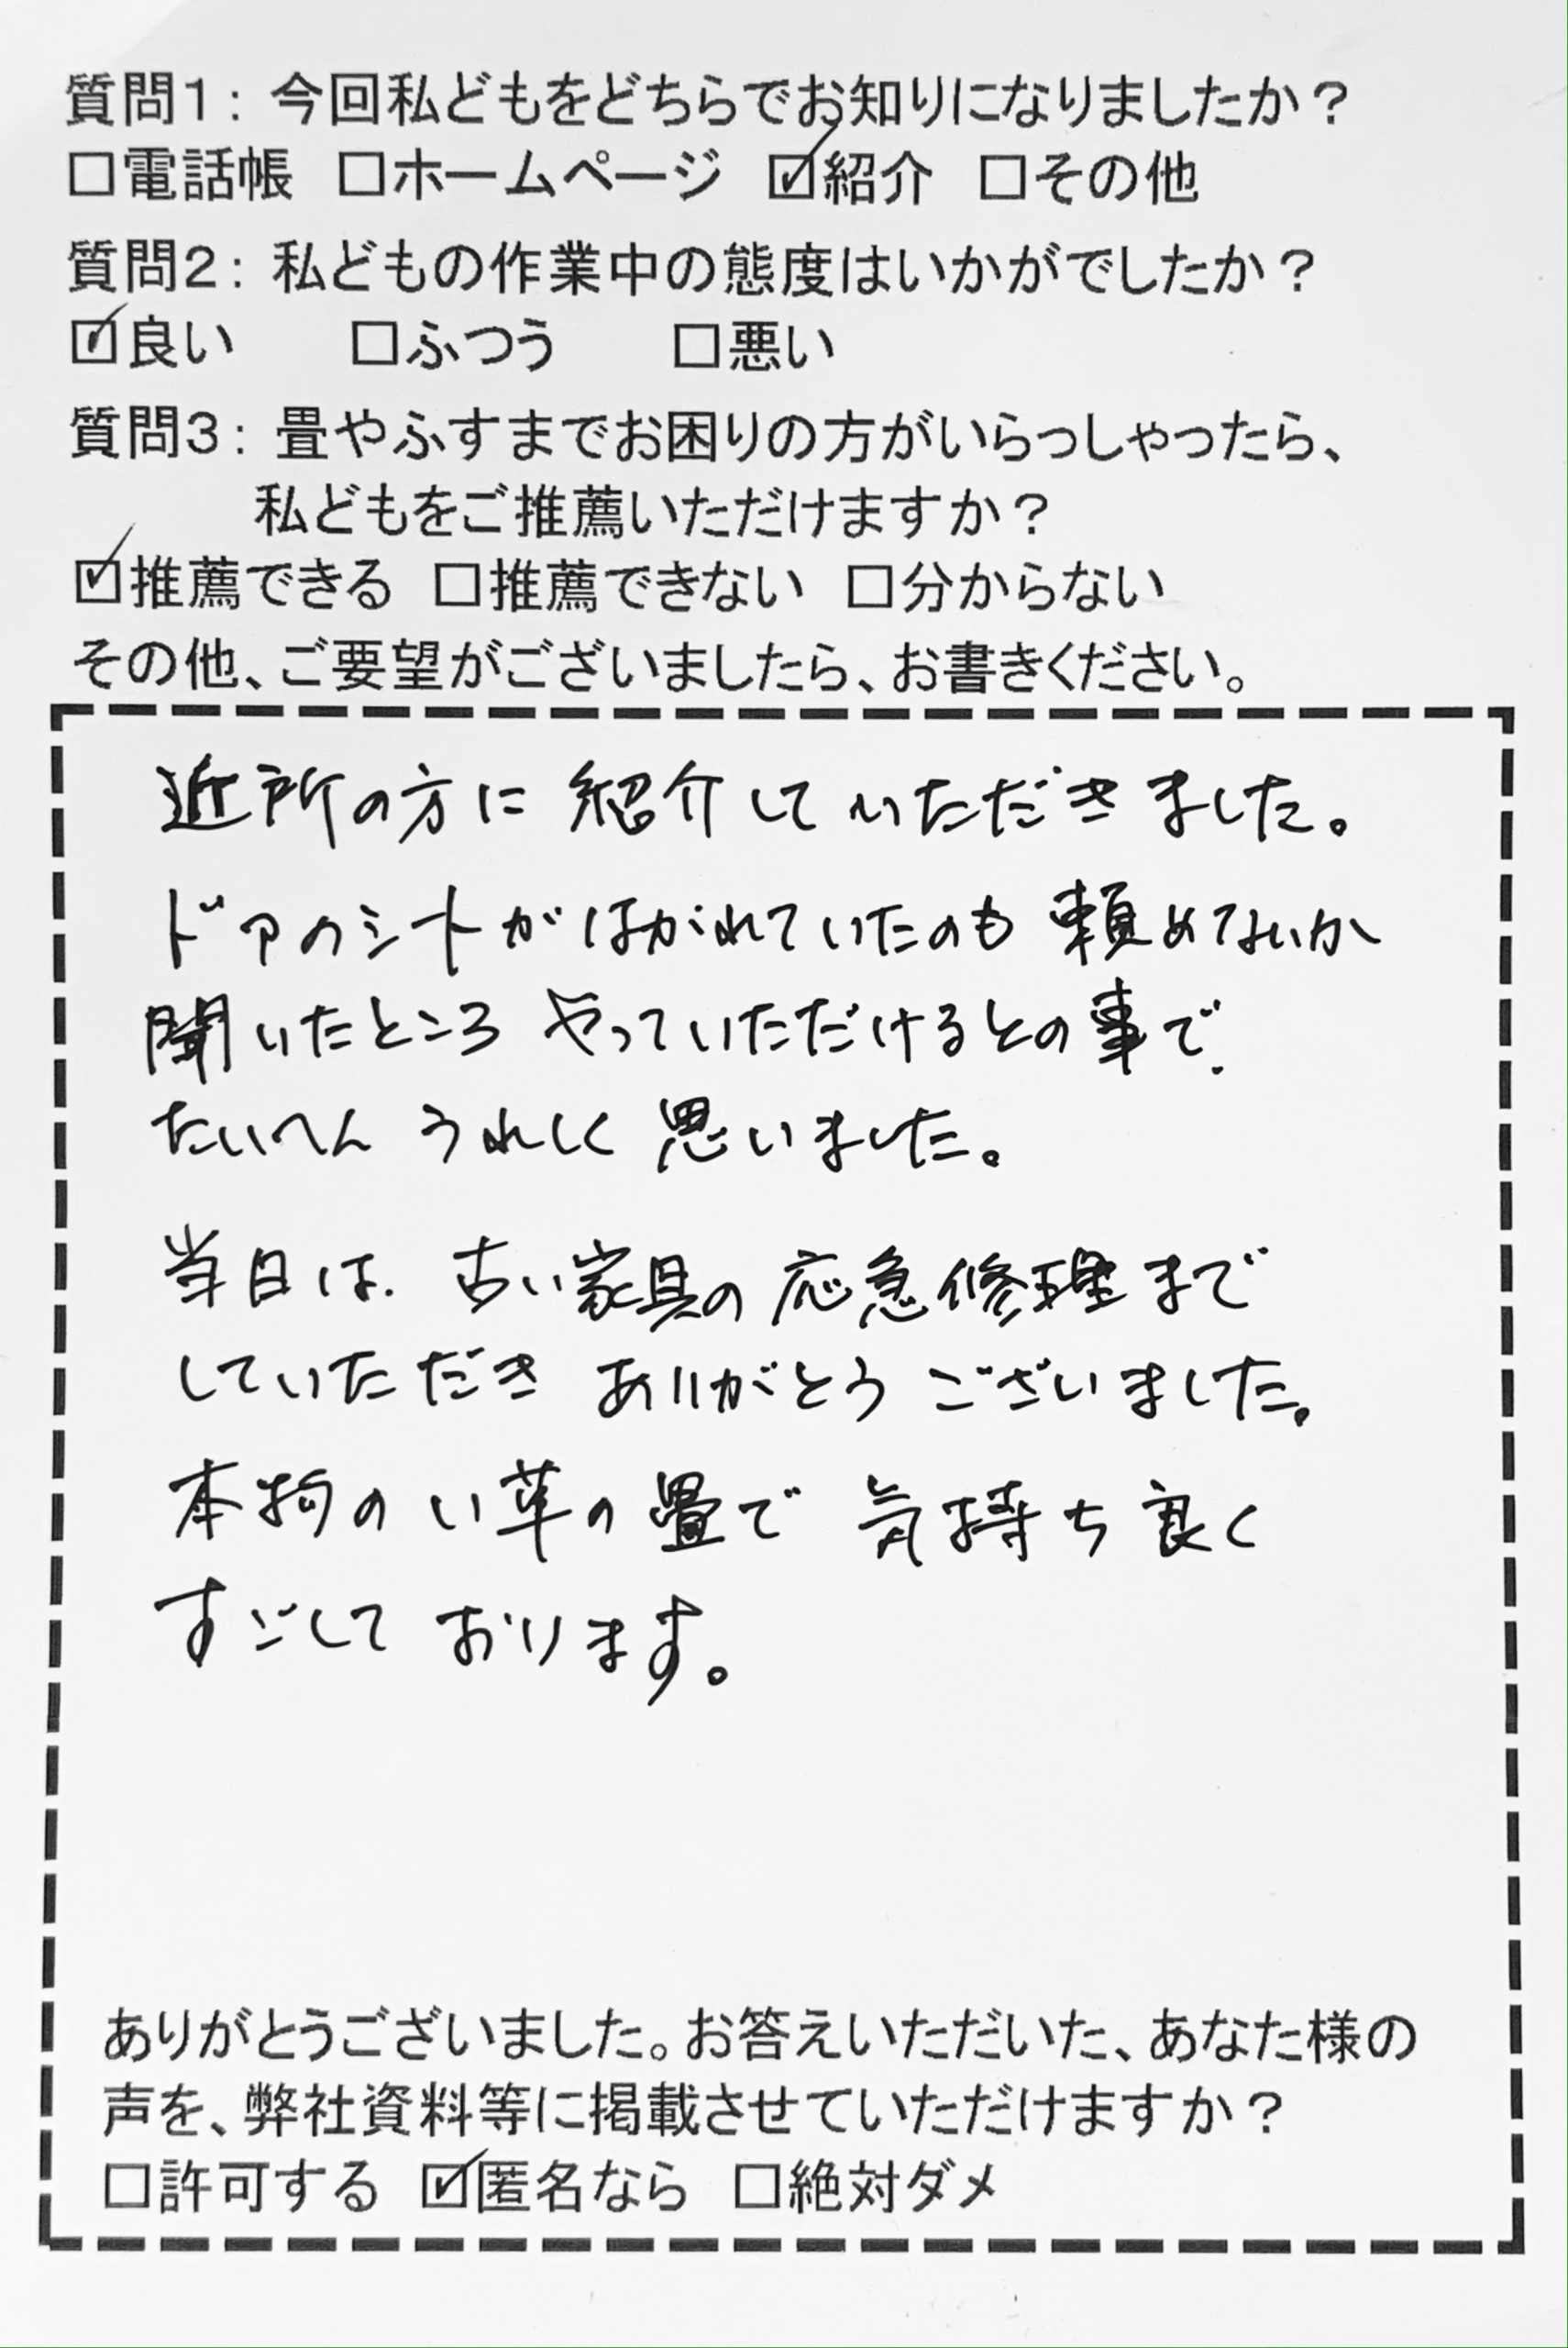 質問1：今回私どもをどちらでお知りになりましたか？
□電話帳 □ホームページ ☑紹介 □その他
質問2：私どもの作業中の態度はいかがでしたか？
☑良い □ふつう □悪い
質問3：畳やふすまでお困りの方がいらっしゃったら、
私どもをご推薦いただけますか？
☑推薦できる □推薦できない □分からない
その他、ご要望がございましたら、お書きください。
近所の方に紹介していただきました。
ドアのシートがはがれていたのも頼めないか
聞いたところ やっていただけるとの事で、
たいへん うれしく思いました。
当日は、古い家具の応急修理まで
していただき ありがとうございました。
本物のい草の畳で 気持ち良く
すごしております。
ありがとうございました。お答えいただいた、あなた様の
声を、弊社資料等に掲載させていただけますか？
□許可する ☑匿名なら □絶対ダメ